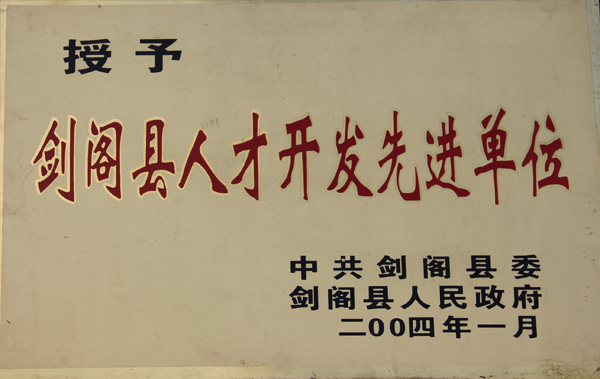 授予
剑阁县人才开发先进单位
中共剑阁县委
剑阁县人民政府
二00四年一月